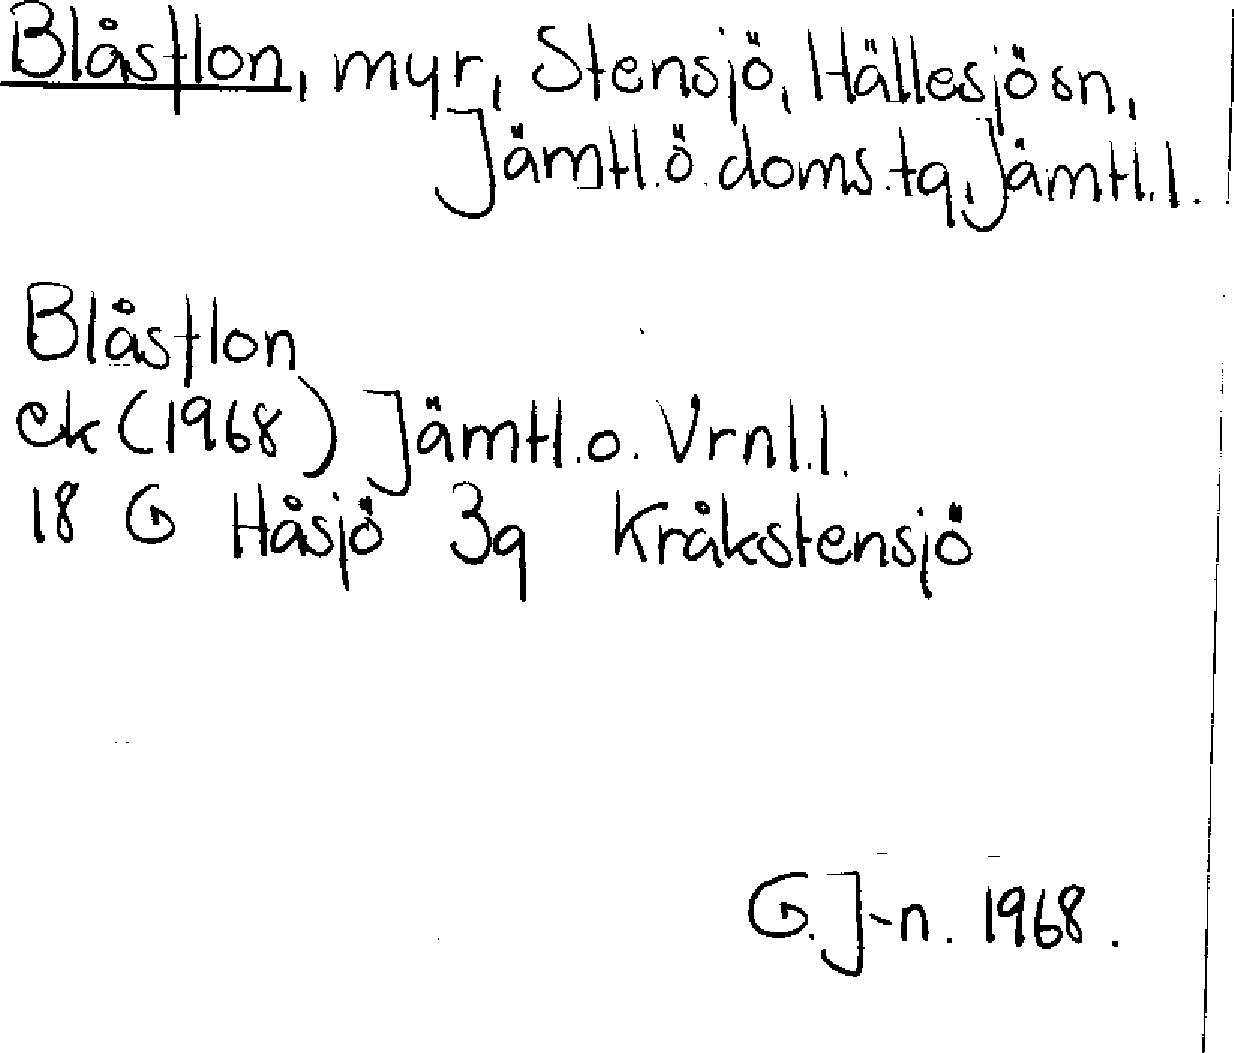 Blåstlon, myr, Stensjö, Hällesjö sn,
Jämtl. ö. doms. tg, Jämtl. l.
Blåstlon
ek (1968) Jämtl. o. Vrnl. l.
18 G Håsjö 3g Kråkstensjö
G. J-n. 1968.